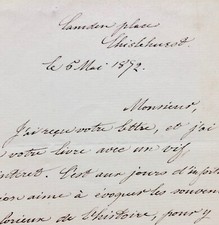 Camden place
Chislehurst.
le 6 Mai 1872.
Monsieur,
J'ai reçu votre lettre, et j'ai
votre livre avec un vif
intérêt. C'est aux jours d'infort
aime à évoquer les souven
de l'histoire, pour y